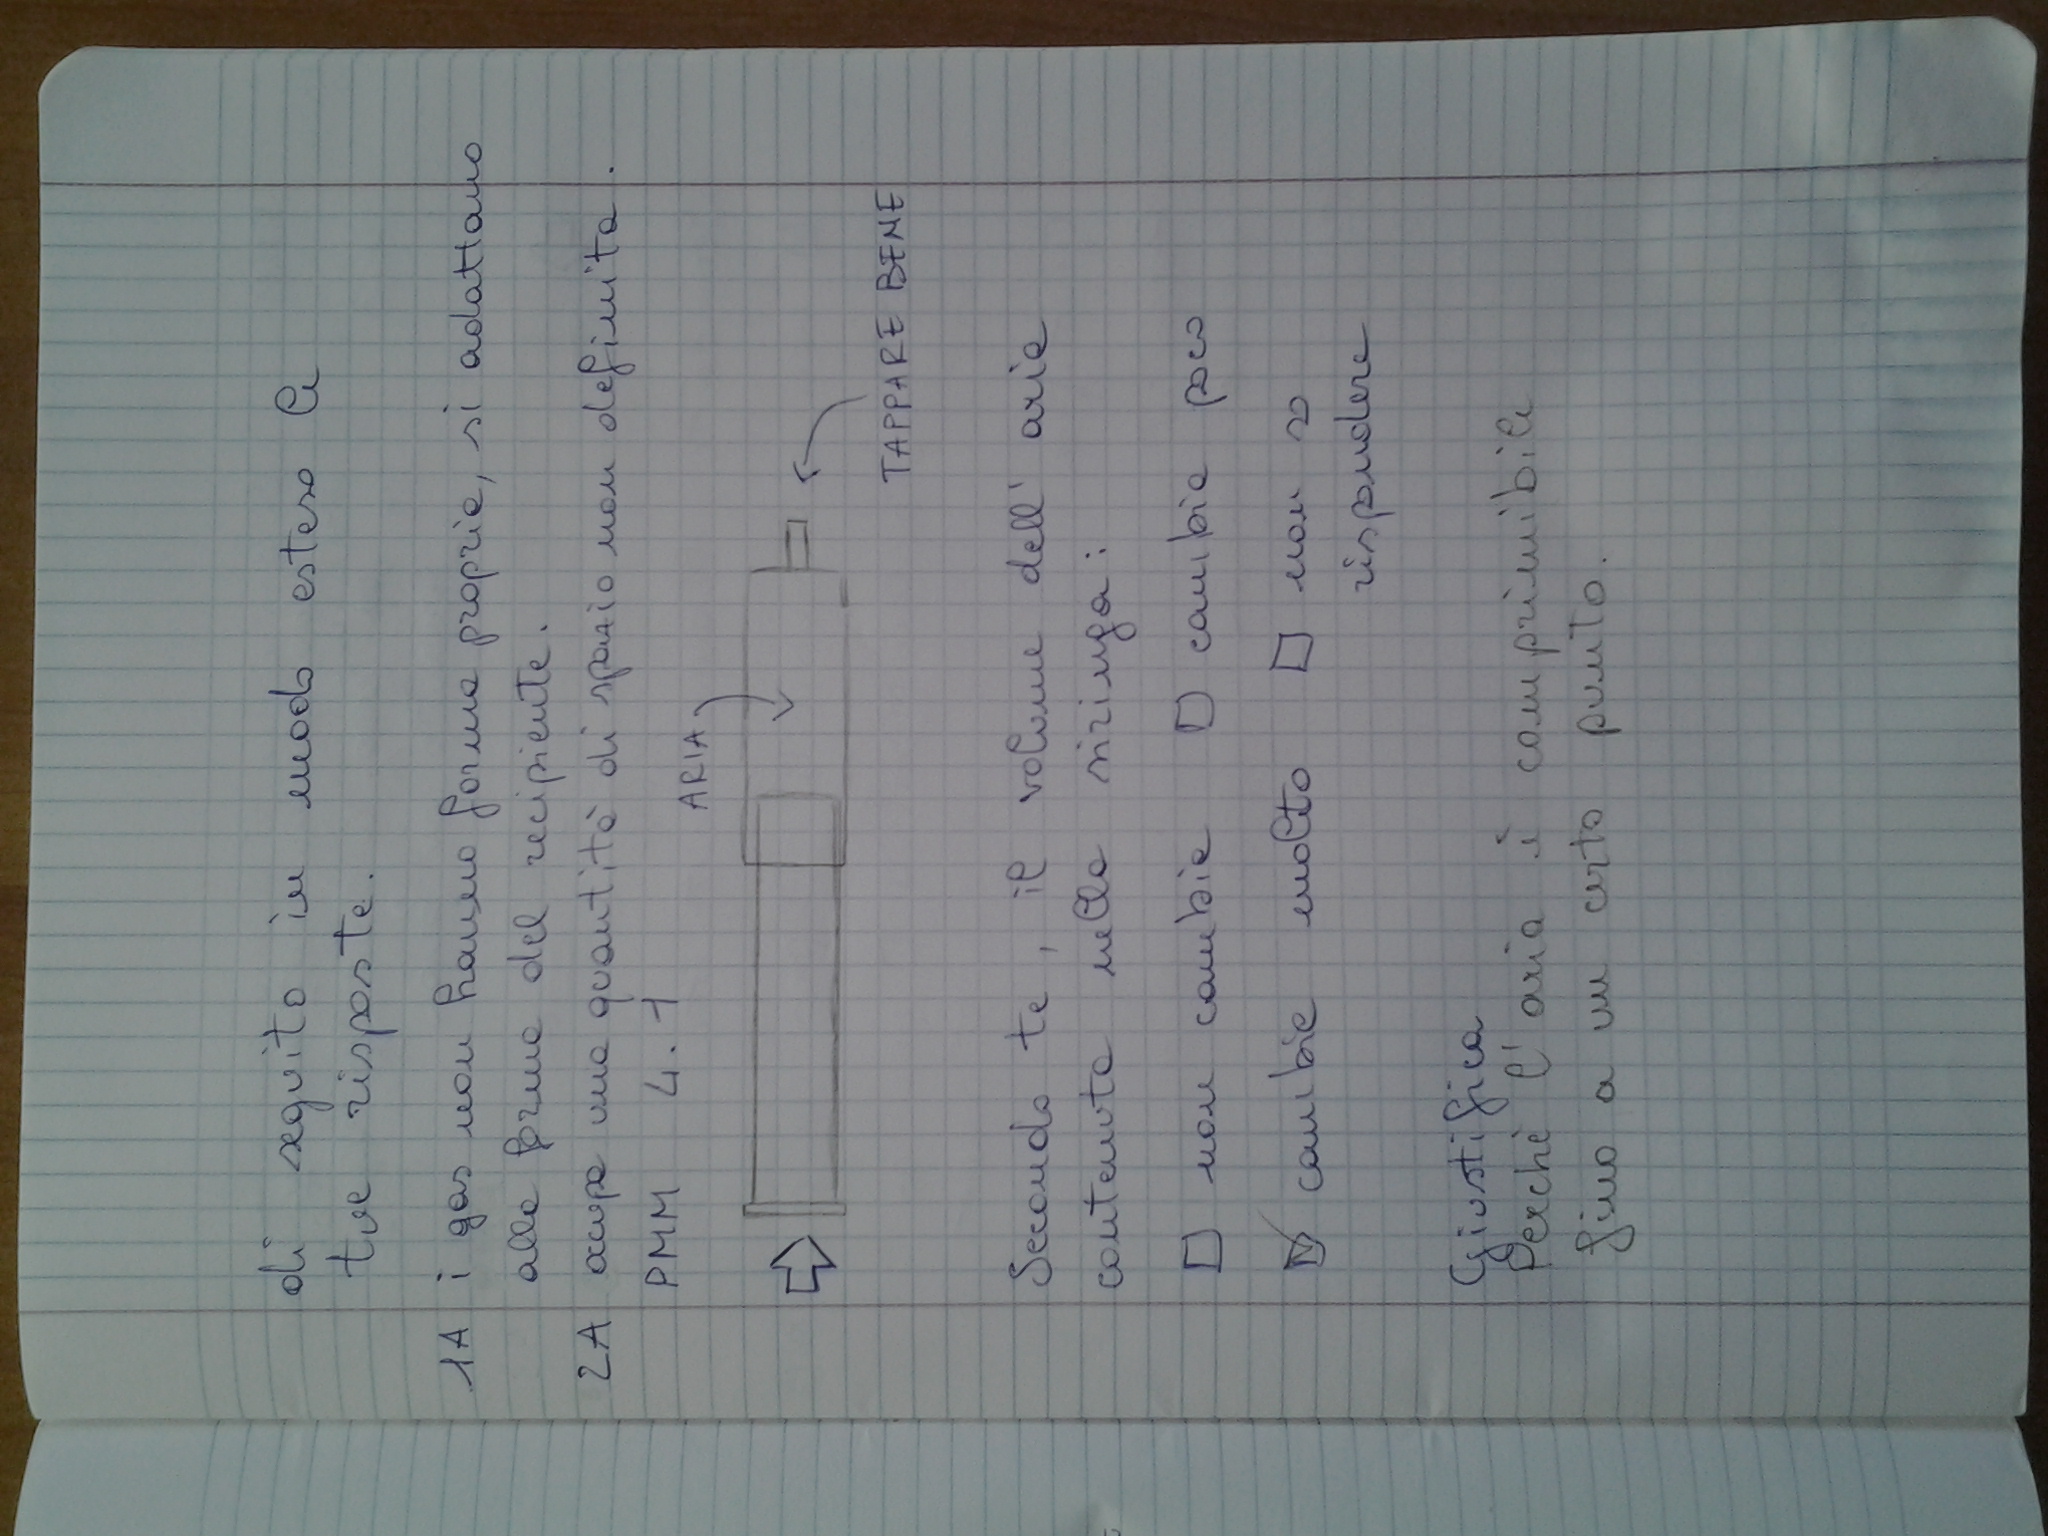 di seguito in modo esteso le
tue risposte.
1A i gas non hanno forma propria, si adattano
alla forma del recipiente.
2A occupa una quantità di spazio non definita.
PMM 4.1
ARIA
TAPPARE BENE
Secondo te, il volume dell'aria
contenuta nella siringa:
☐ non cambia ☐ cambia poco
☑ cambia molto ☐ non so
rispondere
Giustifica
Perchè l'aria è comprimibile
fino a un certo punto.